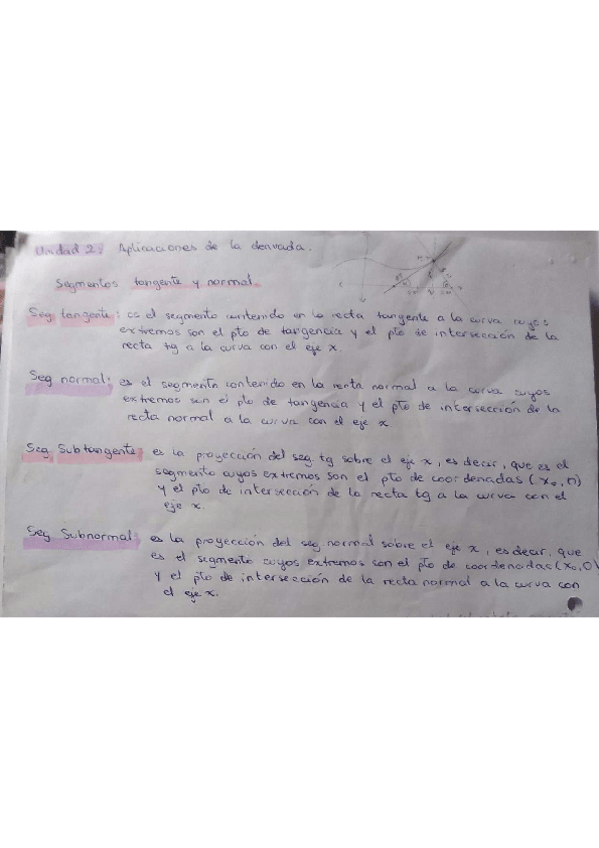 Unidad 2: Aplicaciones de la derivada.
Segmentos tangente y normal.
Seg. tangente: es el segmento contenido en la recta tangente a la curva cuyos
extremos son el pto de tangencia y el pto de intersección de la
recta tg a la curva con el eje x.
Seg normal: es el segmento contenido en la recta normal a la curva cuyos
extremos son el pto de tangencia y el pto de intersección de la
recta normal a la curva con el eje x
Seg. Subtangente: es la proyección del seg. tg sobre el eje x, es decir, que es el
segmento cuyos extremos son el pto de coordenadas (x₀, 0)
y el pto de intersección de la recta tg a la curva con el
eje x.
Seg. Subnormal: es la proyección del seg normal sobre el eje x, es decir, que
es el segmento cuyos extremos son el pto de coordenadas (x₀, 0)
y el pto de intersección de la recta normal a la curva con
el eje x.